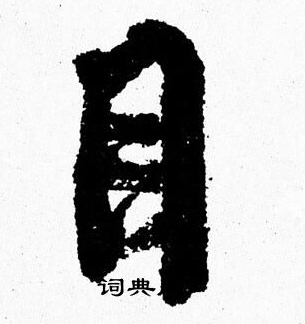 目
词典